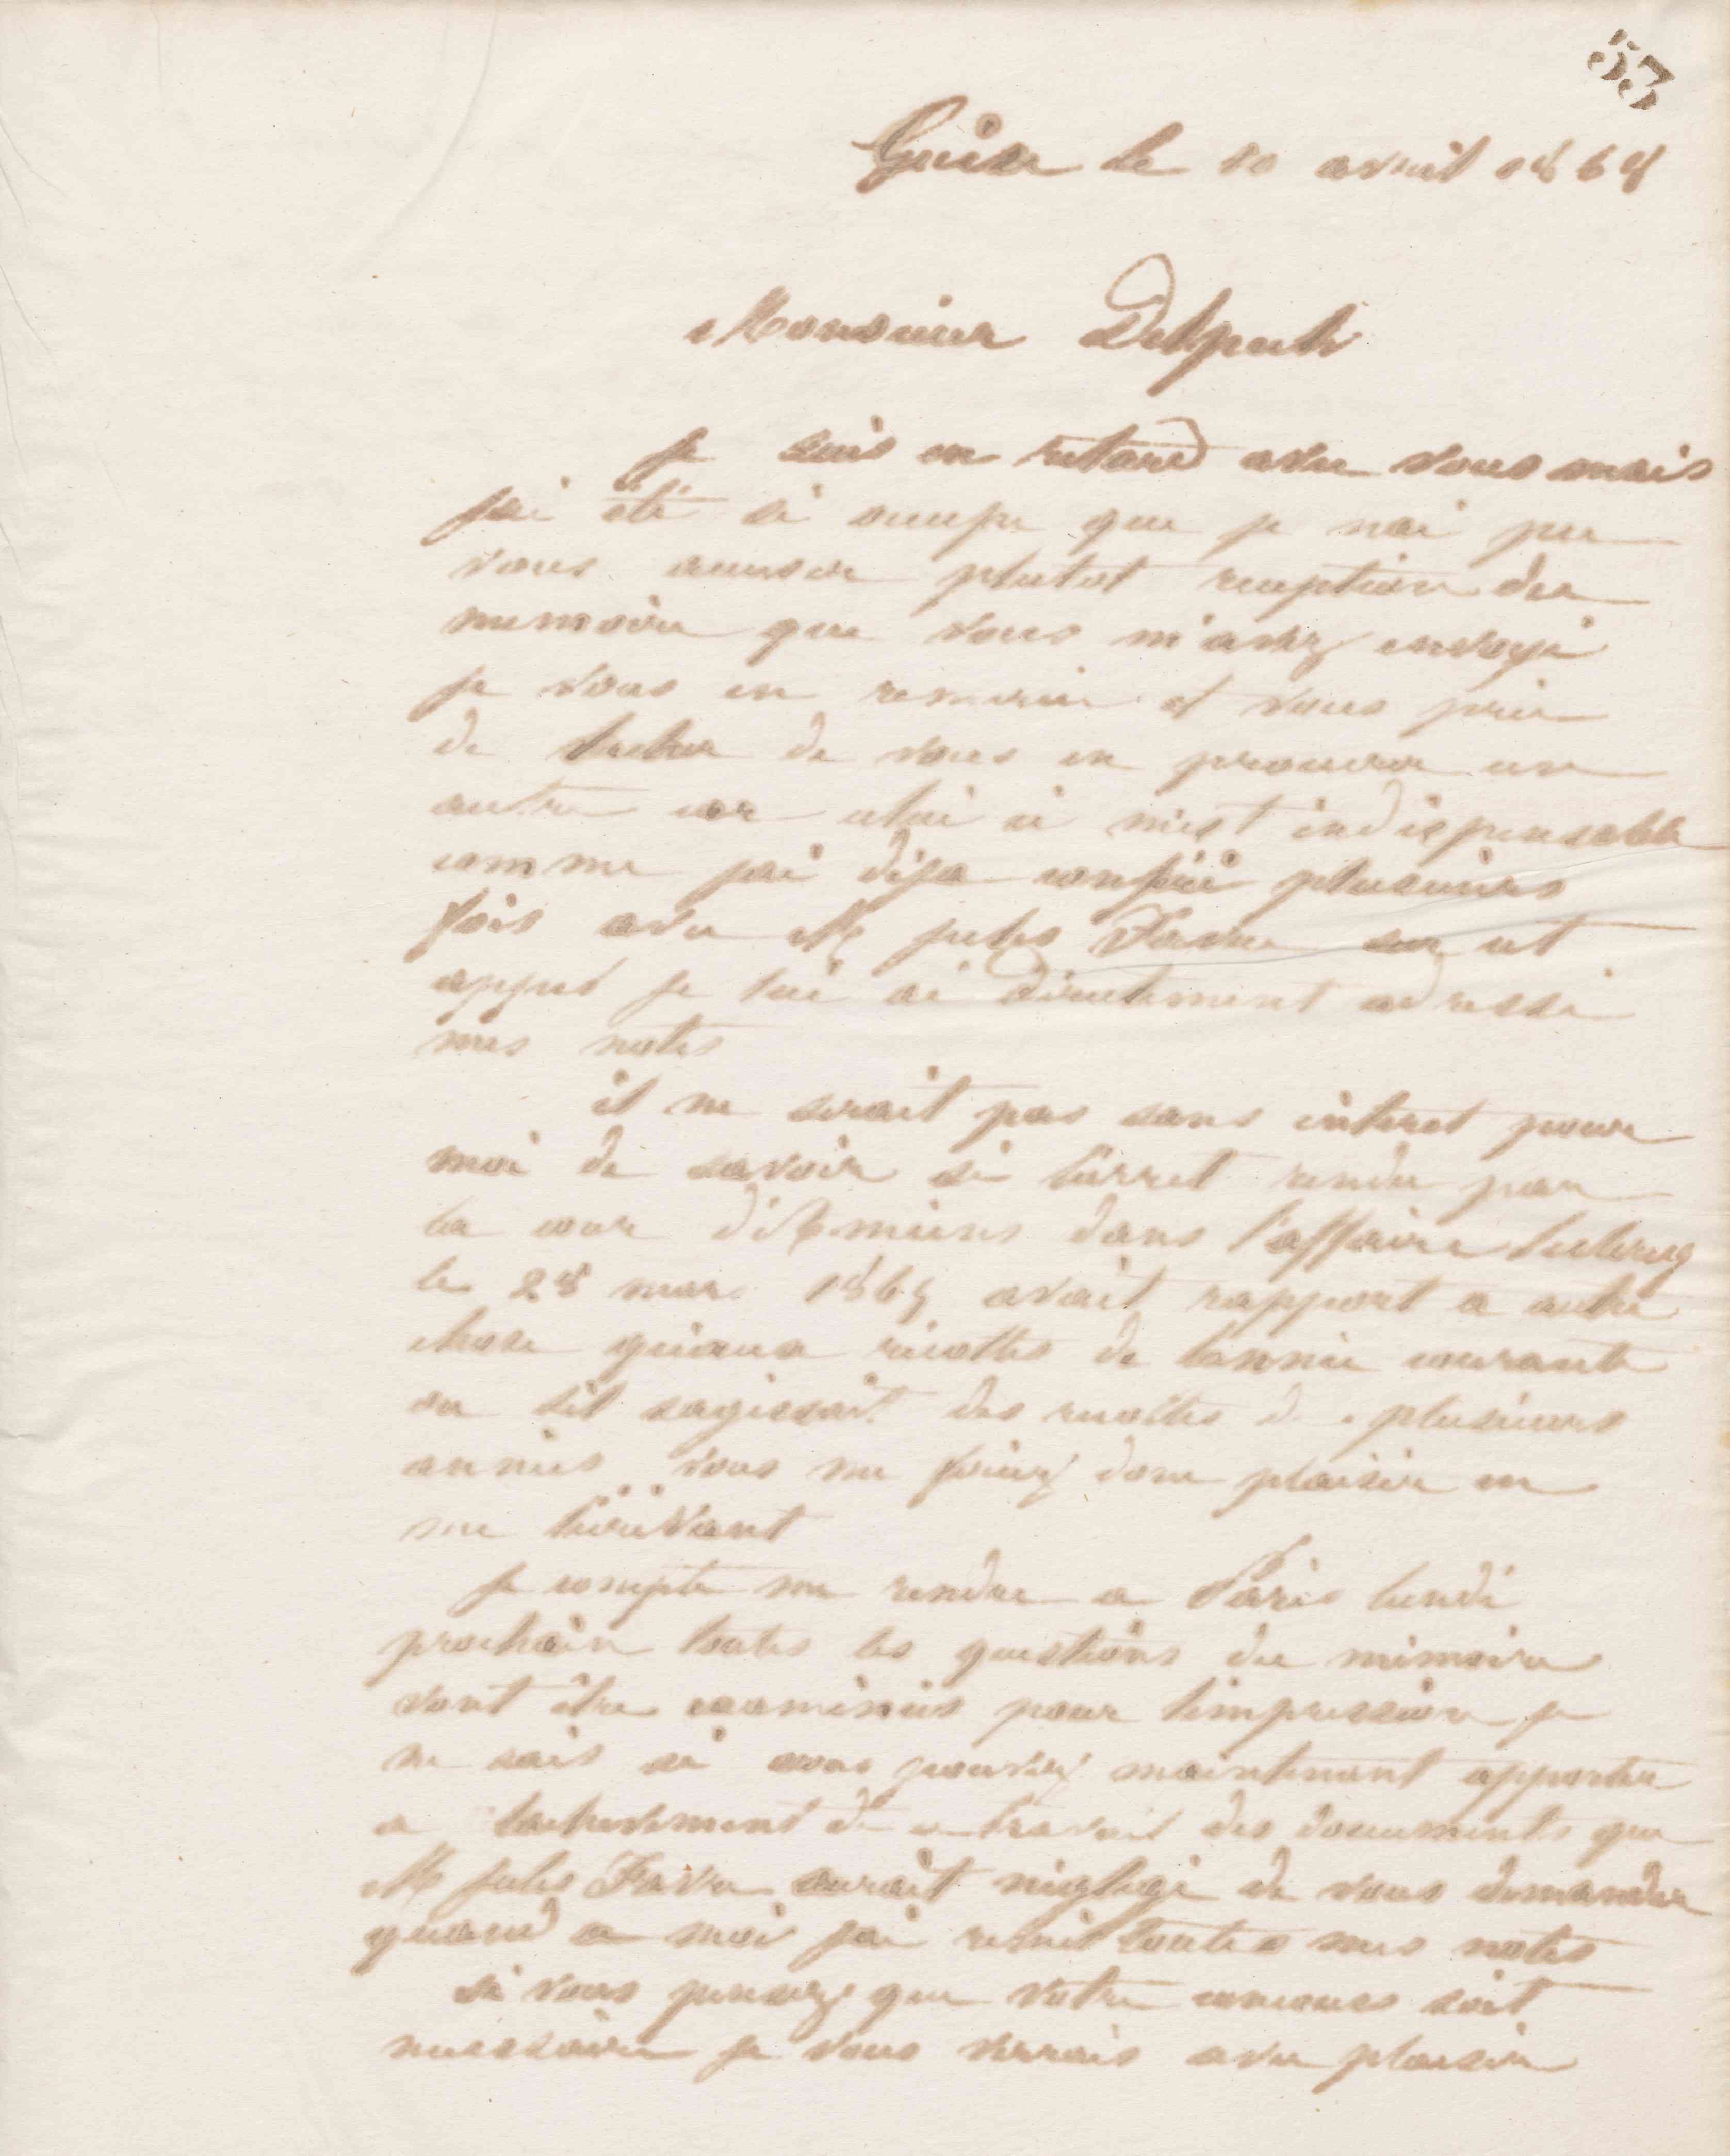 53
Guise le 10 avril 1868
Monsieur Delpech
je suis en retard avec vous mais
jai été si occupe que je nai pu
vous accuser plutot reception du
memoire que vous m'avez envoyé
je vous en remercie et vous prie
de tacher de vous en procurer un
autre car celui ci mest indispensable
comme jai déja conféré plusieurs
fois avec Me jules Favre sur cet
appel je lui ai directement adressé
mes notes
il ne serait pas sans interet pour
moi de savoir si larret rendu par
la cour d'Amiens dans l'affaire
le 28 mars 1865 avait rapport a autre
chose qu'aux récoltes de lannée courante
ou sil sagissait des recoltes de plusieurs
années vous me feriez donc plaisir en
me lécrivant
je compte me rendre a Paris lundi
prochain toutes les questions du mémoire
vont être examinées pour limpression je
ne sais si vous pouvez maintenant apporter
a lachevement de ce travail des documents que
Me jules Favre aurait négligé de vous demander
quand a moi jai remit toutes mes notes
si vous pensez que votre concours soit
necessaire je vous verrais avec plaisir